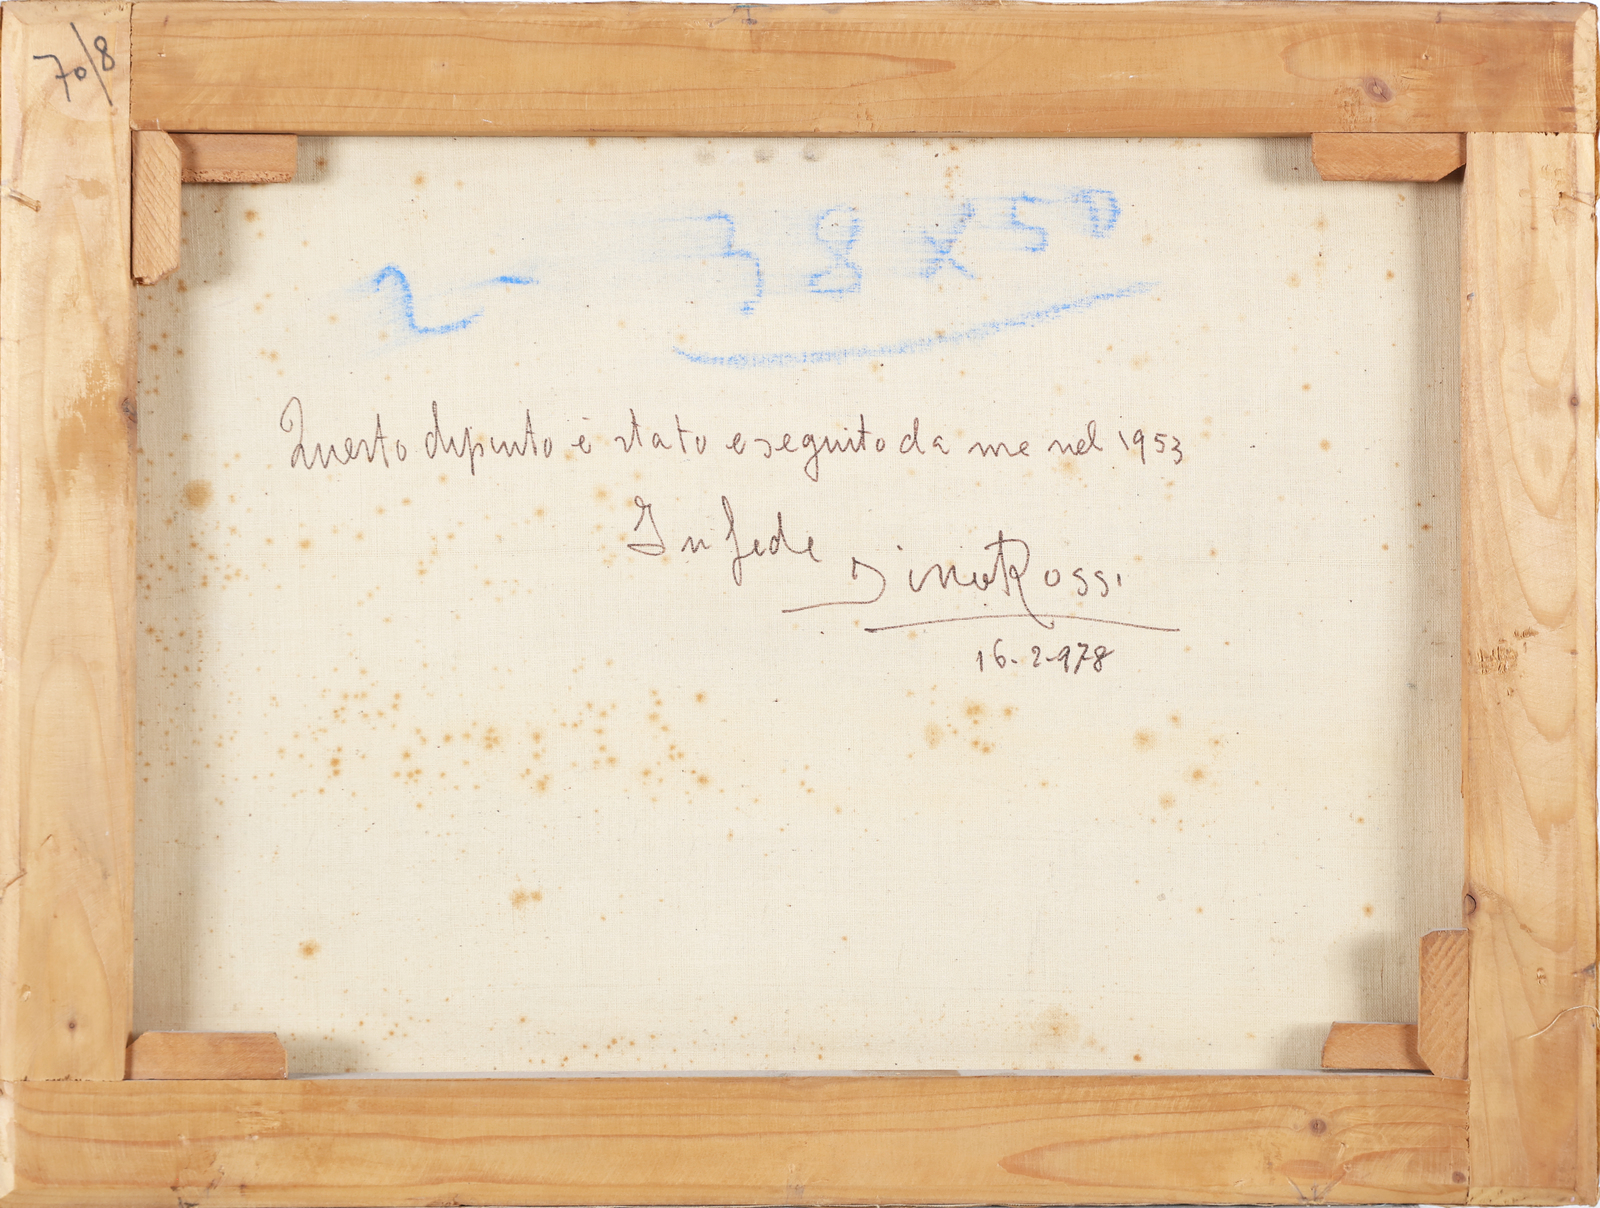 70/8
2 - 38 x 50
Questo dipinto è stato eseguito da me nel 1953
In fede
Gino Rossi
16-2-978